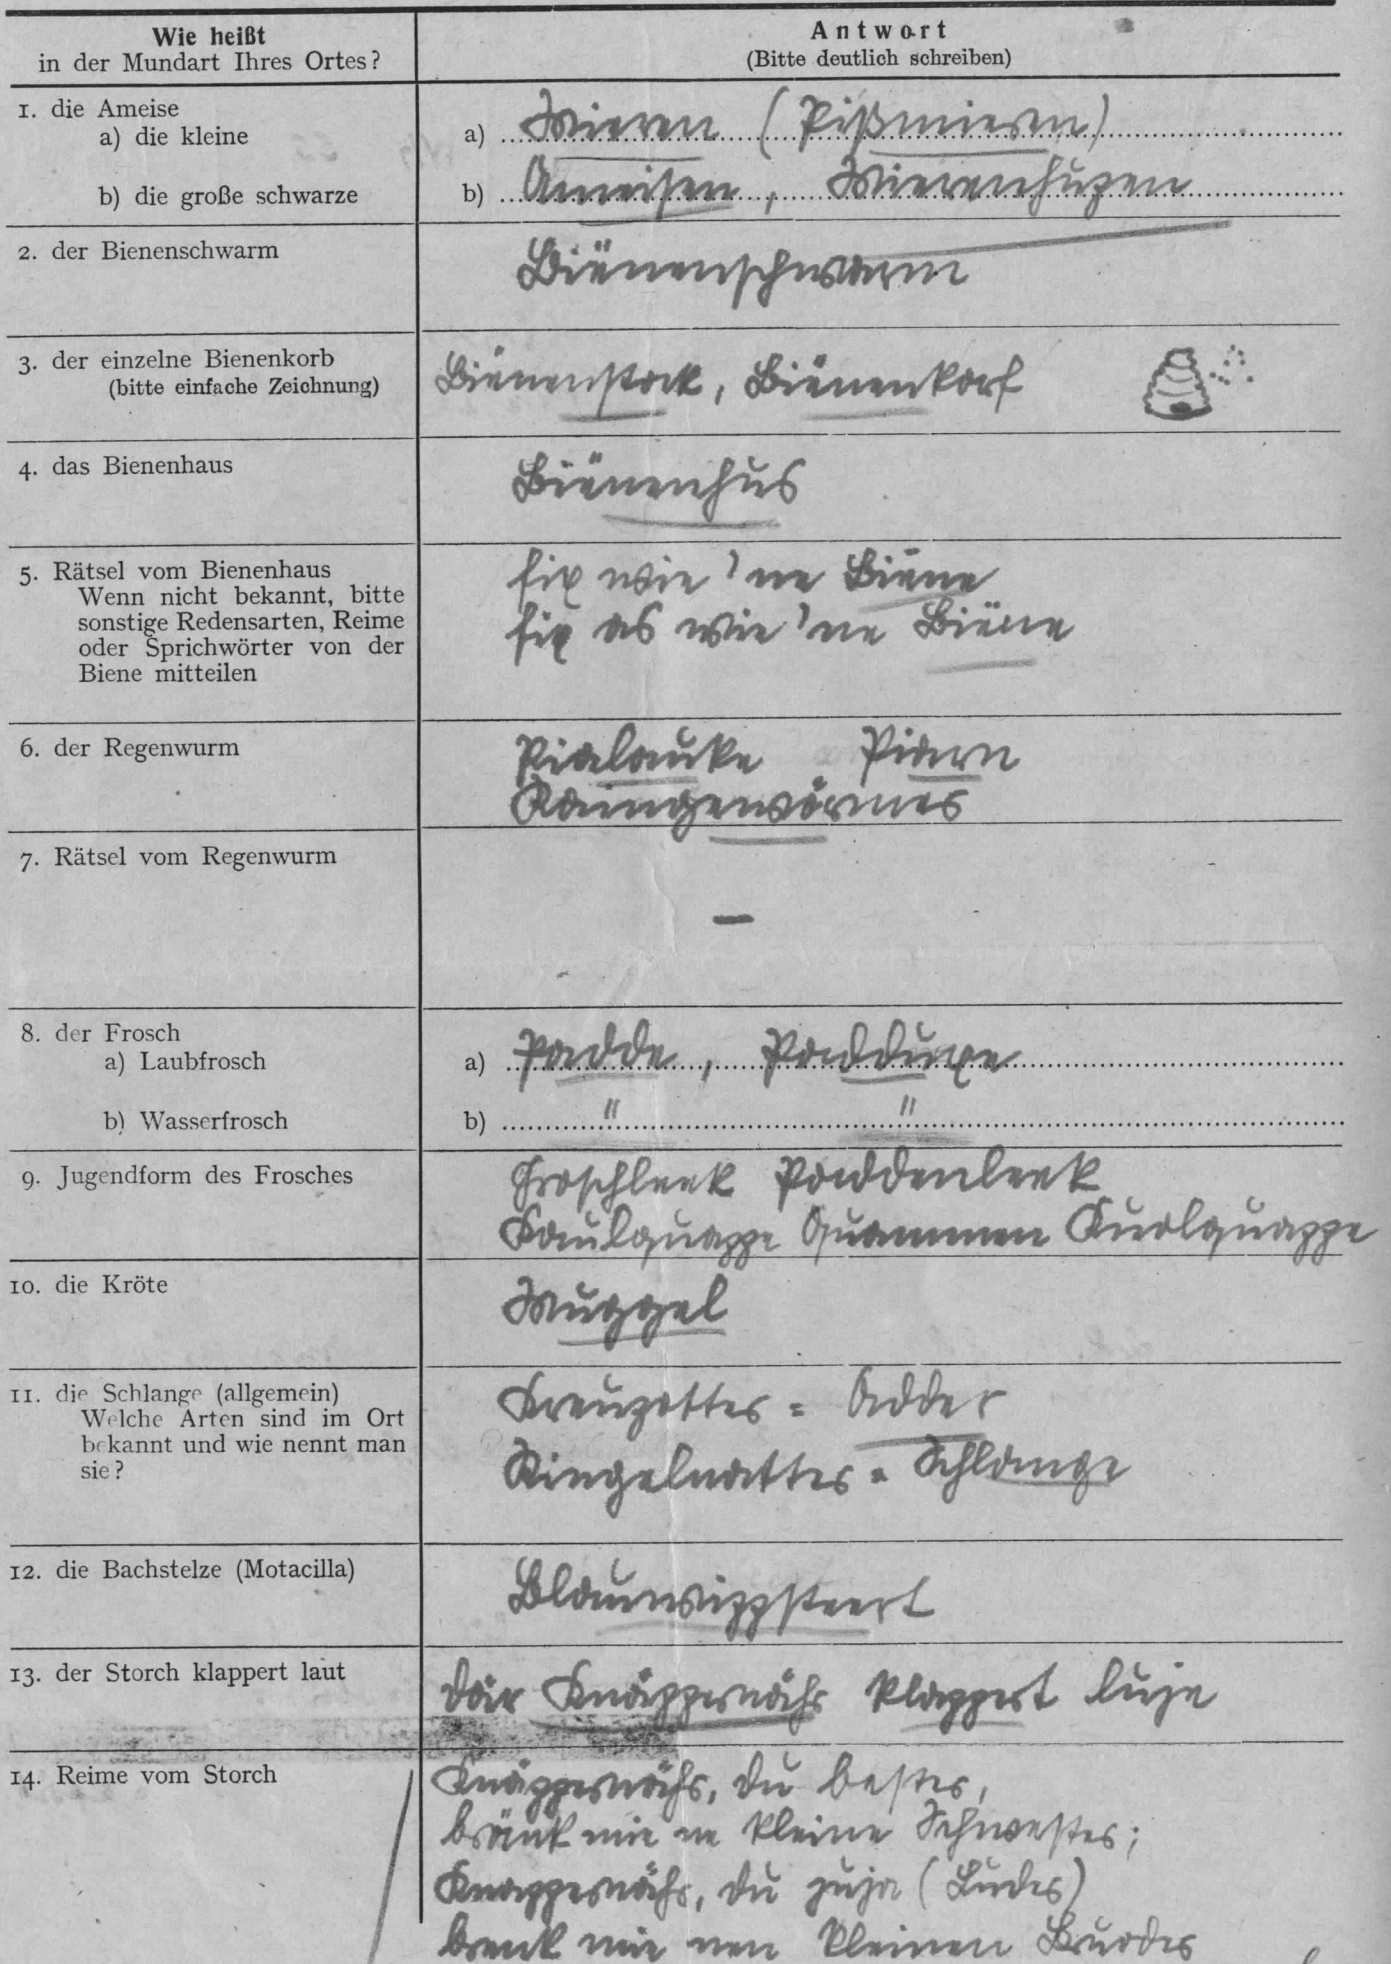 Wie heißt
in der Mundart Ihres Ortes?
Antwort
(Bitte deutlich schreiben)
1. die Ameise
a) die kleine
a) Mieren (Pißmieren)
b) die große schwarze
b) Ameisen, Mierenhupen
2. der Bienenschwarm
Biënenschwarm
3. der einzelne Bienenkorb
(bitte einfache Zeichnung)
Biënenstock, Biënenkorf
4. das Bienenhaus
Biënenhus
5. Rätsel vom Bienenhaus
Wenn nicht bekannt, bitte
sonstige Redensarten, Reime
oder Sprichwörter von der
Biene mitteilen
fix wie 'ne Biëne
fix as wie 'ne Biëne
6. der Regenwurm
Pialauke Piarn
Raingenwörmer
7. Rätsel vom Regenwurm
–
8. der Frosch
a) Laubfrosch
a) Padde, Padduxe
b) Wasserfrosch
b) " "
9. Jugendform des Frosches
Froschleek Paddenleek
Kaulquappe Quammen Kuolquappe
10. die Kröte
Muggel
11. die Schlange (allgemein)
Welche Arten sind im Ort
bekannt und wie nennt man
sie?
Kreuzotter = Adder
Ringelnatter = Schlange
12. die Bachstelze (Motacilla)
Blauwippsteert
13. der Storch klappert laut
Där Knäppernähr klappert luje
14. Reime vom Storch
Knäppernähr, du bester,
bränk mie ne kleine Schwester;
Knappernähr, du juja (Luder)
brenk mie nen kleinen Bruoder